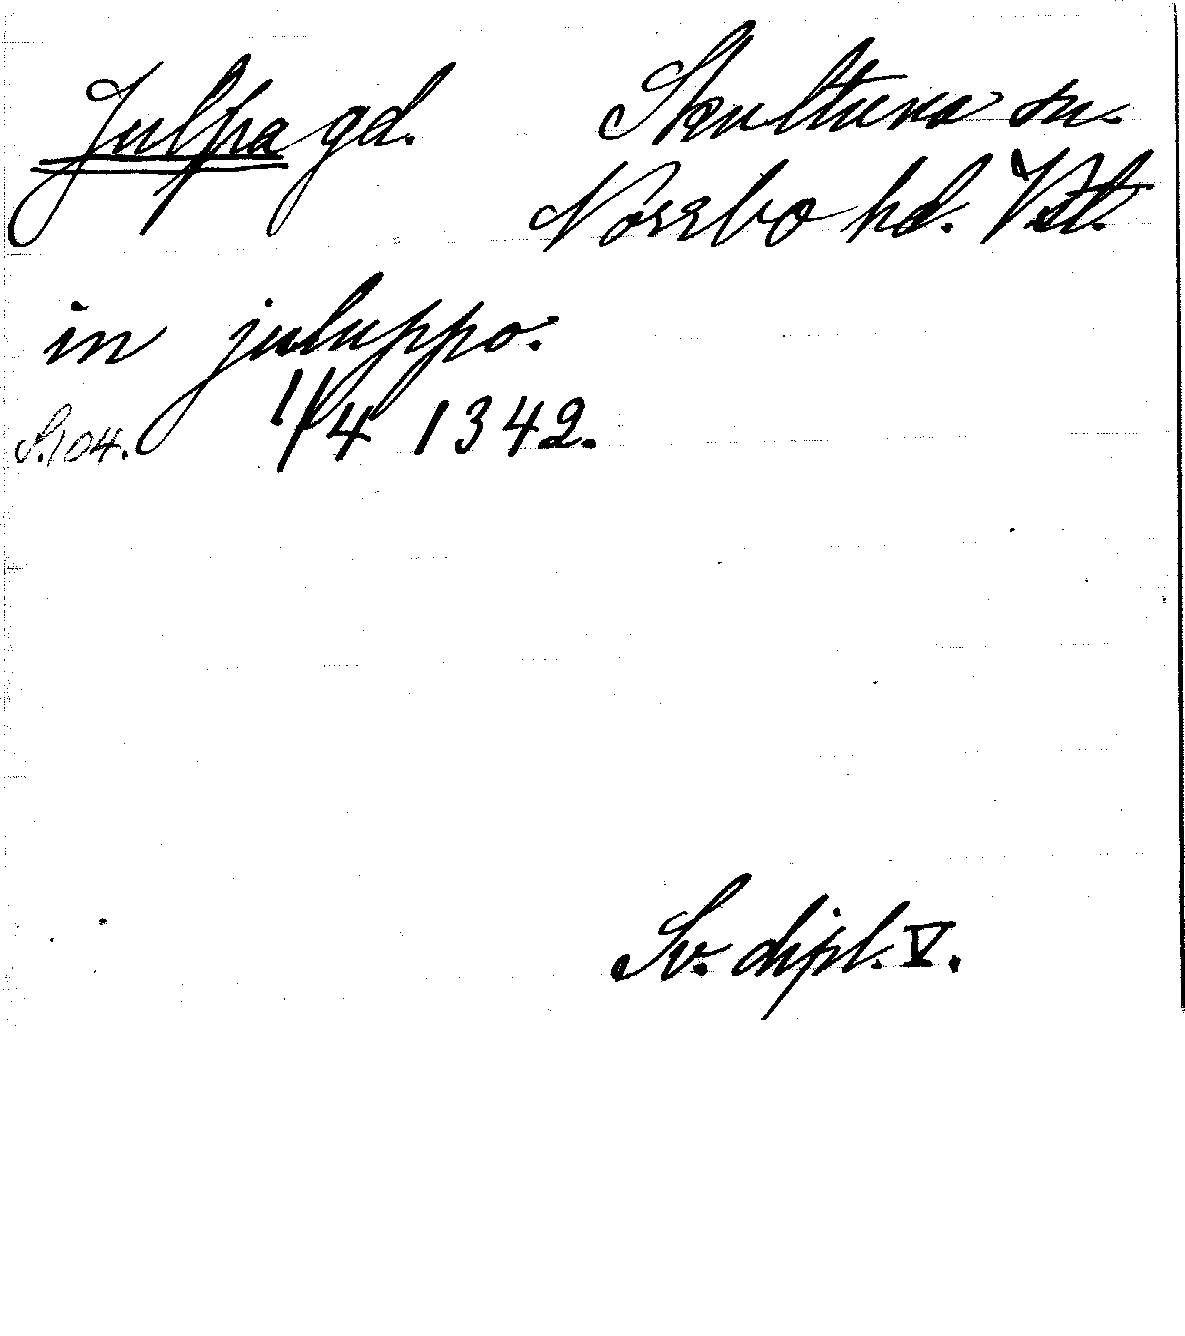 Julpa gd. Skultuna sn.
Norrbo hd. Vstl.
in juluppo.
S. 104. 1/4 1342.
Sv. dipl. V.